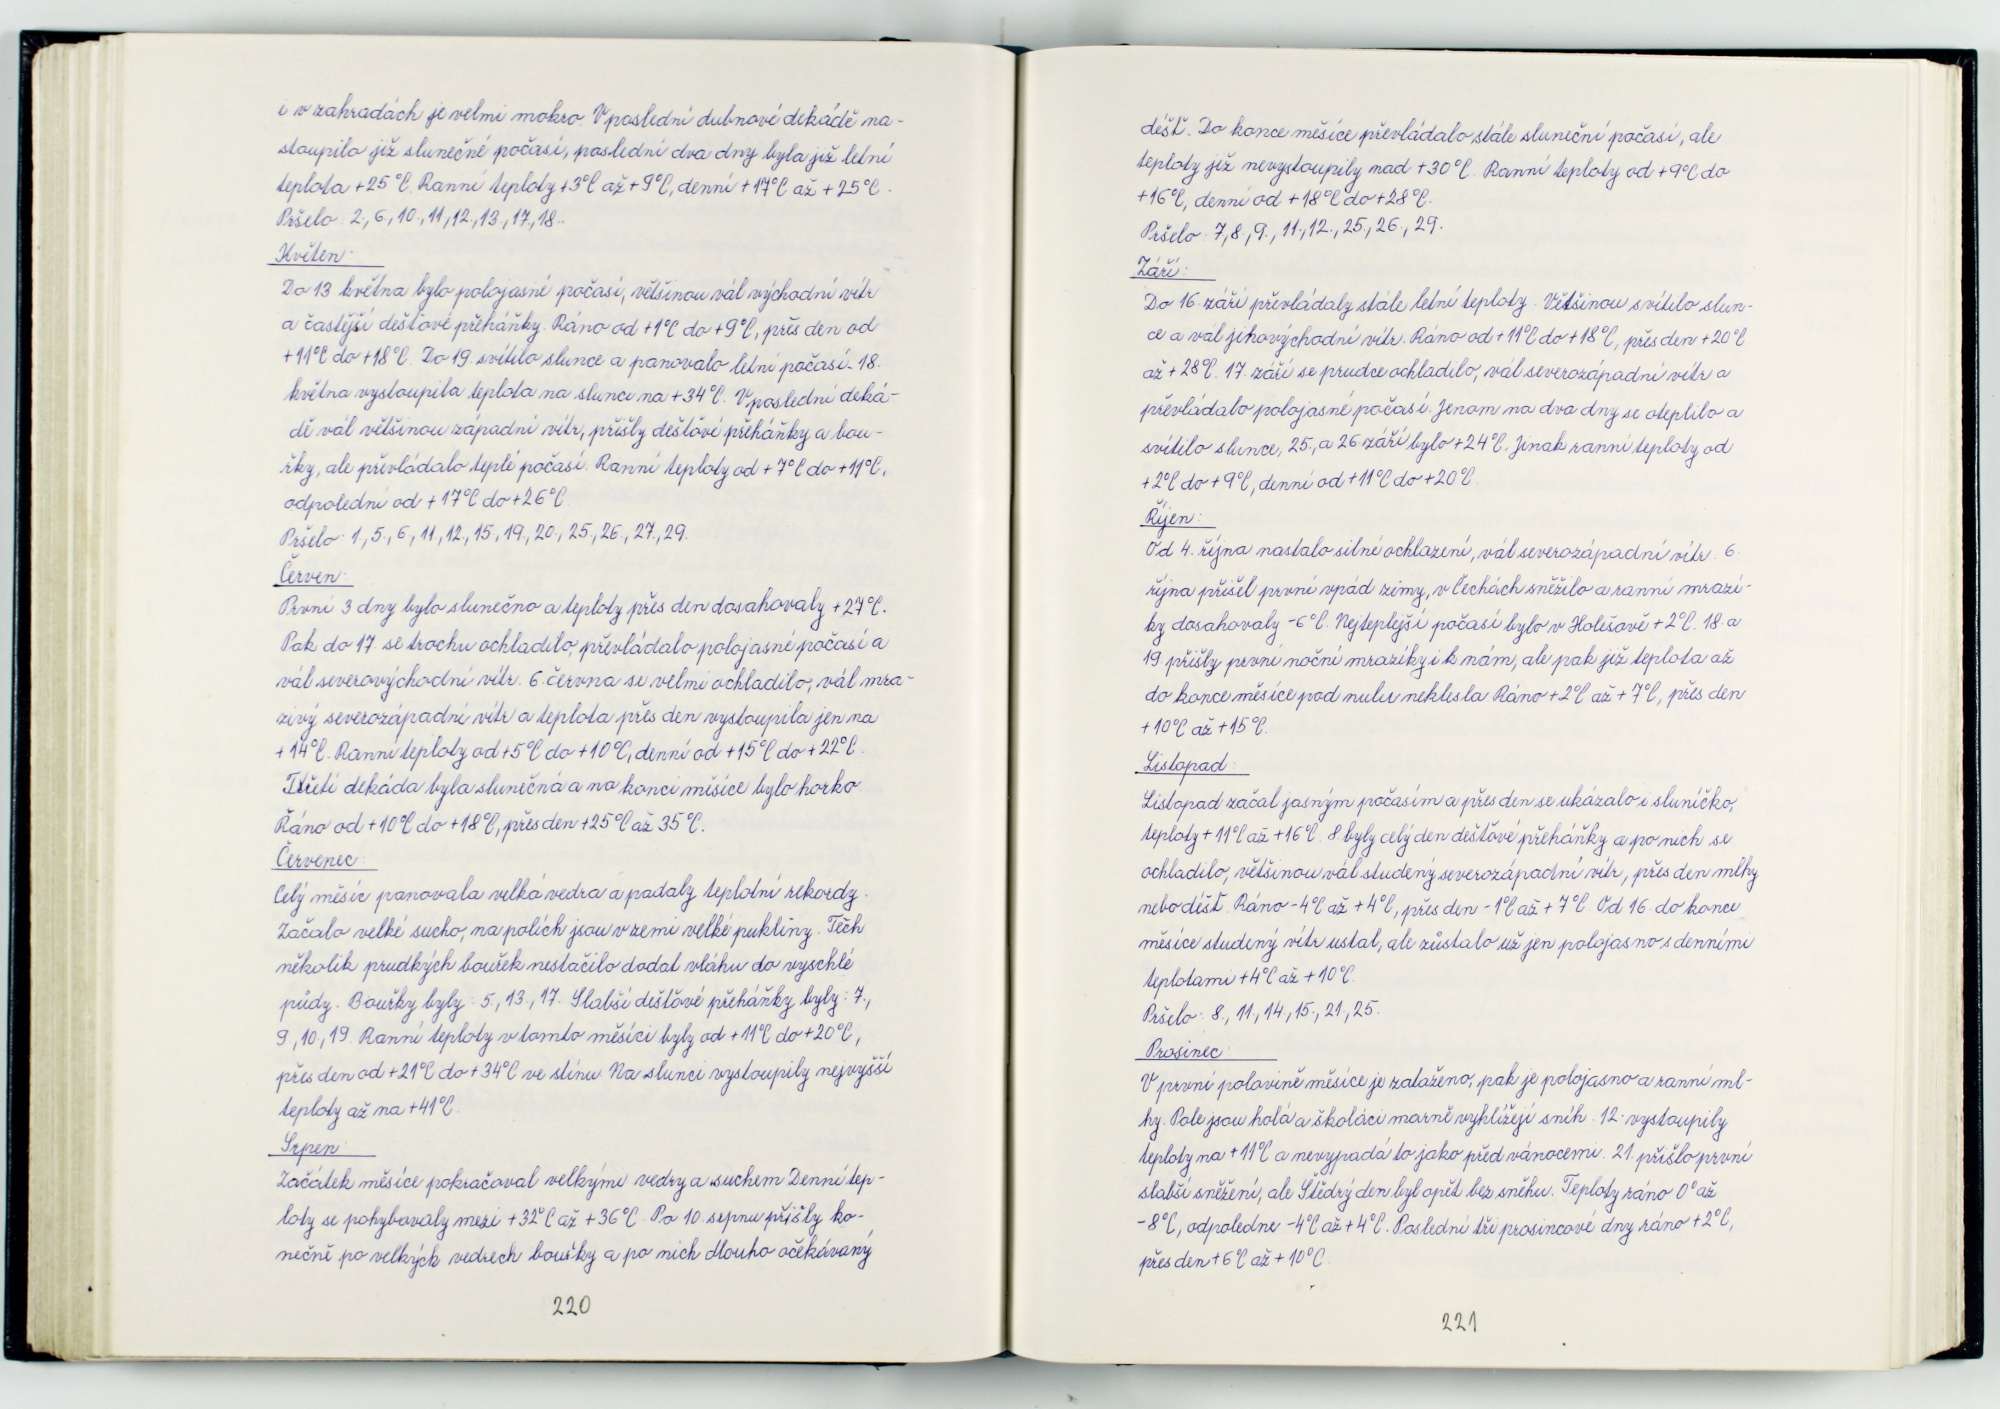 i v zahradách je velmi mokro. V poslední dubnové dekádě na-
stoupilo již slunečné počasí, poslední dva dny byla již letní
teplota +25°C. Ranní teploty +3°C až +9°C, denní +17°C až +25°C.
Pršelo: 2., 6., 10., 11., 12., 13., 17., 18.
Květen:
Do 13 května bylo polojasné počasí, většinou vál východní vítr
a častější dešťové přeháňky. Ráno od +1°C do +9°C, přes den od
+11°C do +18°C. Do 19. svítilo slunce a panovalo letní počasí. 18.
května vystoupila teplota na slunci na +34°C. V poslední deká-
dě vál většinou západní vítr, přišly dešťové přeháňky a bou-
řky, ale převládalo teplé počasí. Ranní teploty od +7°C do +11°C,
odpolední od +17°C do +26°C.
Pršelo: 1., 5., 6., 11., 12., 15., 19., 20., 25., 26., 27., 29.
Červen:
První 3 dny bylo slunečno a teploty přes den dosahovaly +27°C.
Pak do 17. se trochu ochladilo, převládalo polojasné počasí a
vál severovýchodní vítr. 6. června se velmi ochladilo, vál mra-
zivý severozápadní vítr a teplota přes den vystoupila jen na
+14°C. Ranní teploty od +5°C do +10°C, denní od +15°C do +22°C.
Třetí dekáda byla slunečná a na konci měsíce bylo horko
Ráno od +10°C do +18°C, přes den +25°C až 35°C.
Červenec:
Celý měsíc panovala velká vedra a padaly teplotní rekordy.
Začalo velké sucho, na polích jsou v zemi velké pukliny. Těch
několik prudkých bouřek nestačilo dodat vláhu do vyschlé
půdy. Bouřky byly: 5., 13., 17. Slabší dešťové přeháňky byly: 7.,
9., 10., 19. Ranní teploty v tomto měsíci byly od +11°C do +20°C,
přes den od +21°C do +34°C ve stínu. Na slunci vystoupily nejvyšší
teploty až na +41°C.
Srpen:
Začátek měsíce pokračoval velkými vedry a suchem. Denní tep-
loty se pohybovaly mezi +32°C až +36°C. Po 10. srpnu přišly ko-
nečně po velkých vedrech bouřky a po nich dlouho očekávaný
220
déšť. Do konce měsíce převládalo stále sluneční počasí, ale
teploty již nevystoupily nad +30°C. Ranní teploty od +9°C do
+16°C, denní od +18°C do +28°C.
Pršelo: 7., 8., 9., 11., 12., 25., 26., 29.
Září:
Do 16. září převládaly stále letní teploty. Většinou svítilo slun-
ce a vál jihovýchodní vítr. Ráno od +11°C do +18°C, přes den +20°C
až +28°C. 17. září se prudce ochladilo, vál severozápadní vítr a
převládalo polojasné počasí. Jenom na dva dny se oteplilo a
svítilo slunce, 25., a 26 září bylo +24°C. Jinak ranní teploty od
+2°C do +9°C, denní od +11°C do +20°C.
Říjen:
Od 4. října nastalo silné ochlazení, vál severozápadní vítr. 6.
října přišel první vpád zimy, v Čechách sněžilo a ranní mrazí-
ky dosahovaly -6°C. Nejteplejší počasí bylo v Holešově +2°C. 18. a
19 přišly první noční mrazíky i k nám, ale pak již teplota až
do konce měsíce pod nulu neklesla. Ráno +2°C až +7°C, přes den
+10°C až +15°C.
Listopad:
Listopad začal jasným počasím a přes den se ukázalo i sluníčko,
teploty +11°C až +16°C. 8 byly celý den dešťové přeháňky a po nich se
ochladilo, většinou vál studený severozápadní vítr, přes den mlhy
nebo déšť. Ráno -4°C až +4°C, přes den -1°C až +7°C. Od 16. do konce
měsíce studený vítr ustal, ale zůstalo už jen polojasno s denními
teplotami +4°C až +10°C.
Pršelo: 8., 11., 14., 15., 21., 25.
Prosinec:
V první polovině měsíce je zataženo, pak je polojasno a ranní ml-
hy. Pole jsou holá a školáci marně vyhlížejí sníh. 12. vystoupily
teploty na +11°C a nevypadá to jako před vánocemi. 21. přišlo první
slabší sněžení, ale Štědrý den byl opět bez sněhu. Teploty ráno 0° až
-8°C, odpoledne -4°C až +4°C. Poslední tři prosincové dny ráno +2°C,
přes den +6°C až +10°C.
221